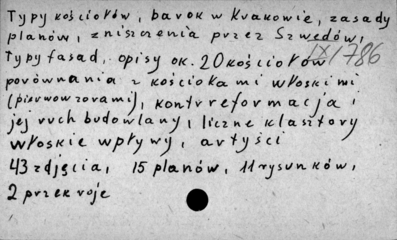 Typy kościołów, barok w Krakowie, zasady
planów, zniszczenia przez Szwedów,
typy fasad, opisy ok. 20 kościołów
IX/786
porównania z kościołami włoskimi
(pierwowzorami), kontrreformacja i
jej ruch budowlany, liczne klasztory
włoskie wpływy, artyści
43 zdjęcia, 15 planów, 11 rysunków,
2 przekroje